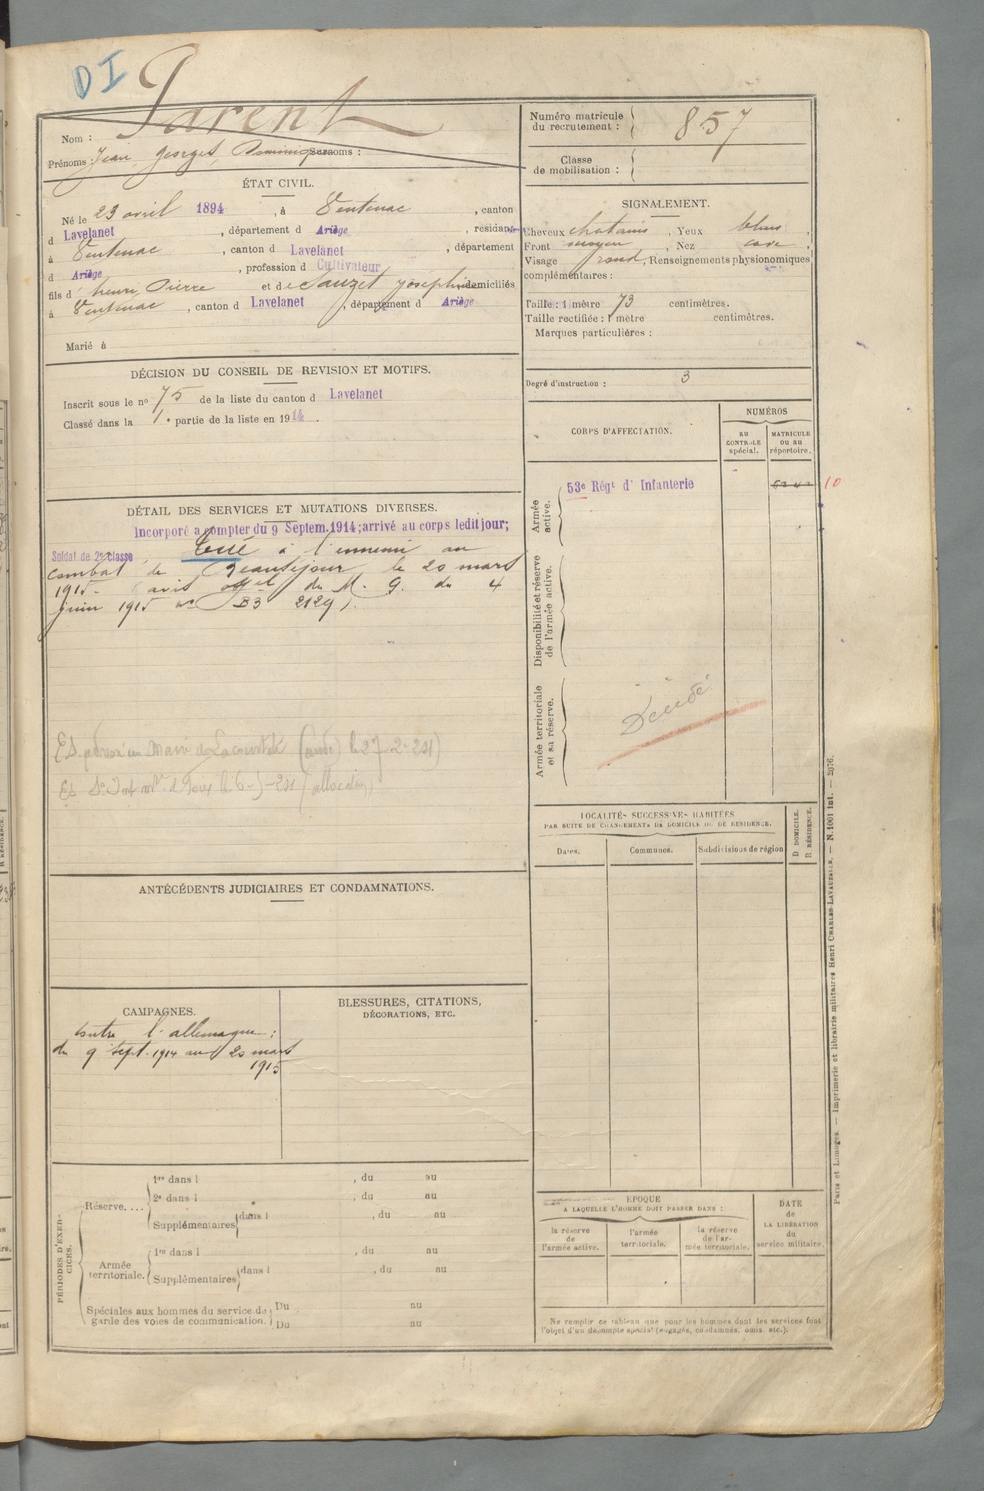 DI
Parent
Nom :
Prénoms : Jean Georges Dominique Surnoms :
Numéro matricule du recrutement : 857
Classe de mobilisation :
ÉTAT CIVIL.
Né le 23 avril 1894, à Ventenac, canton
d Lavelanet, département d Ariège, résidant
à Ventenac, canton d Lavelanet, département
d Ariège, profession d Cultivateur
fils d henri, Pierre et de Sauzet Joséphine domiciliés
à Ventenac, canton d Lavelanet, département d Ariège
Marié à
SIGNALEMENT.
Cheveux chatains, Yeux bleus,
Front moyen, Nez cave,
Visage rond, Renseignements physionomiques
complémentaires :
Taille : 1 mètre 73 centimètres.
Taille rectifiée : 1 mètre centimètres.
Marques particulières :
DÉCISION DU CONSEIL DE REVISION ET MOTIFS.
Inscrit sous le nº 75 de la liste du canton d Lavelanet
Classé dans la 1e partie de la liste en 1914.
Degré d'instruction : 3
CORPS D'AFFECTATION.
NUMÉROS
AU CONTROLE spécial.
MATRICULE OU AU répertoire.
Armée active.
53e Régt d' Infanterie
10
Disponibilité et réserve de l'armée active.
Armée territoriale et sa réserve.
Décédé
DÉTAIL DES SERVICES ET MUTATIONS DIVERSES.
Incorporé a compter du 9 Septem. 1914; arrivé au corps ledit jour;
Soldat de 2e classe Tué à l'ennemi au
combat de Beauséjour le 20 mars
1915. avis offel du M. G. du 4
juin 1915 nº B3 2129).
LOCALITÉS SUCCESSIVES HABITÉES
PAR SUITE DE CHANGEMENTS DE DOMICILE OU DE RÉSIDENCE.
Dates.
Communes.
Subdivisions de région
D. DOMICILE.
R. RÉSIDENCE.
ANTÉCÉDENTS JUDICIAIRES ET CONDAMNATIONS.
CAMPAGNES.
Contre l'allemagne :
du 9 sept. 1914 au 20 mars
1915
BLESSURES, CITATIONS,
DÉCORATIONS, ETC.
PÉRIODES D'EXERCICES.
Réserve. ...
1re dans l , du au
2e dans l , du au
Supplémentaires dans l , du au
Armée territoriale.
1re dans l , du au
Supplémentaires dans l , du au
Spéciales aux hommes du service de
garde des voies de communication.
Du au
Du au
EPOQUE
A LAQUELLE L'HOMME DOIT PASSER DANS :
la réserve de l'armée active.
l'armée territoriale.
la réserve de l'armée territoriale.
DATE de LA LIBÉRATION du service militaire.
Ne remplir ce tableau que pour les hommes dont les services font
l'objet d'un décompte spécial (engagés, condamnés, omis, etc.).
Paris et Limoges. — Imprimerie et librairie militaires Henri CHARLES-LAVAUZELLE. — N. 1001 int. — 2676.